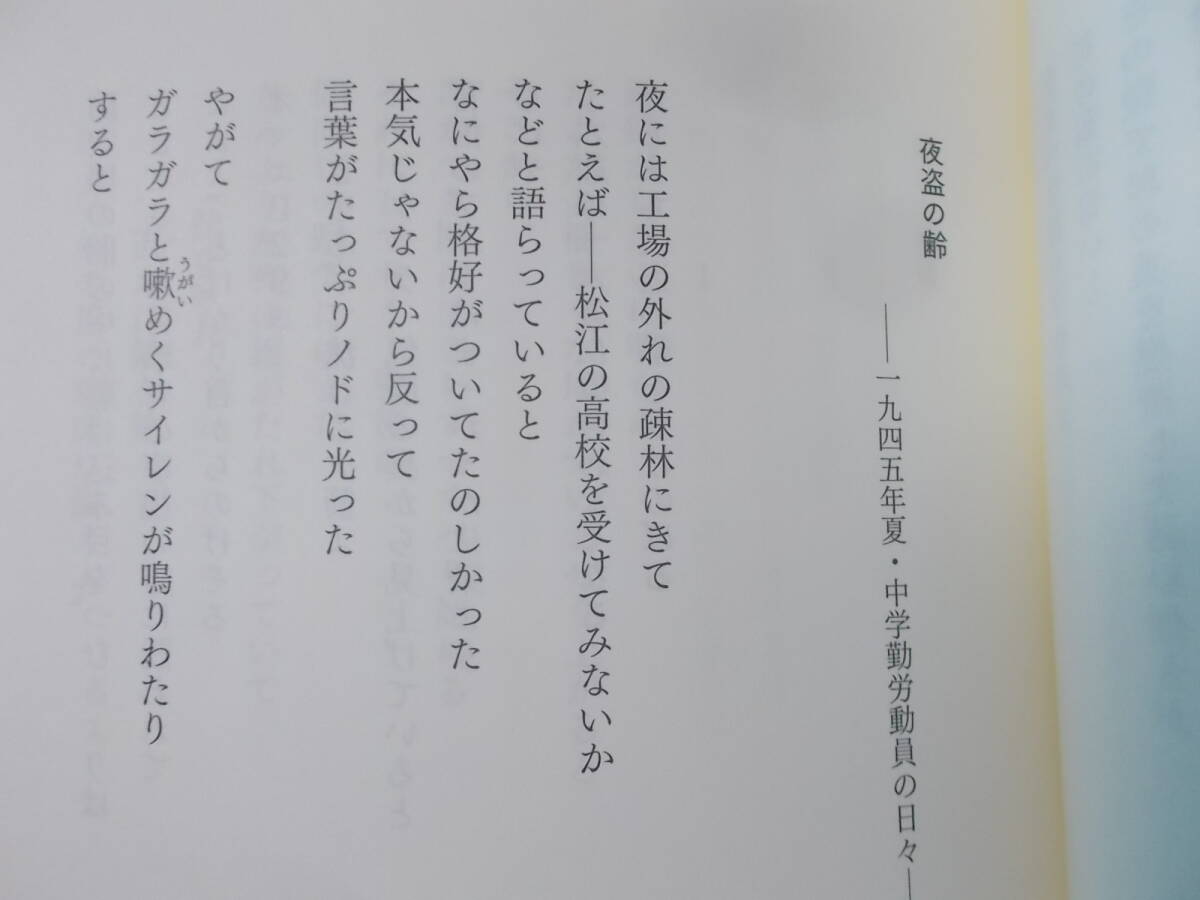 夜盗の齢
――一九四五年夏・中学勤労動員の日々―
夜には工場の外れの疎林にきて
たとえば――松江の高校を受けてみないか
などと語らっていると
なにやら格好がついてたのしかった
本気じゃないから反って
言葉がたっぷりノドに光った
やがて
ガラガラと嗽めくサイレンが鳴りわたり
うがい
すると